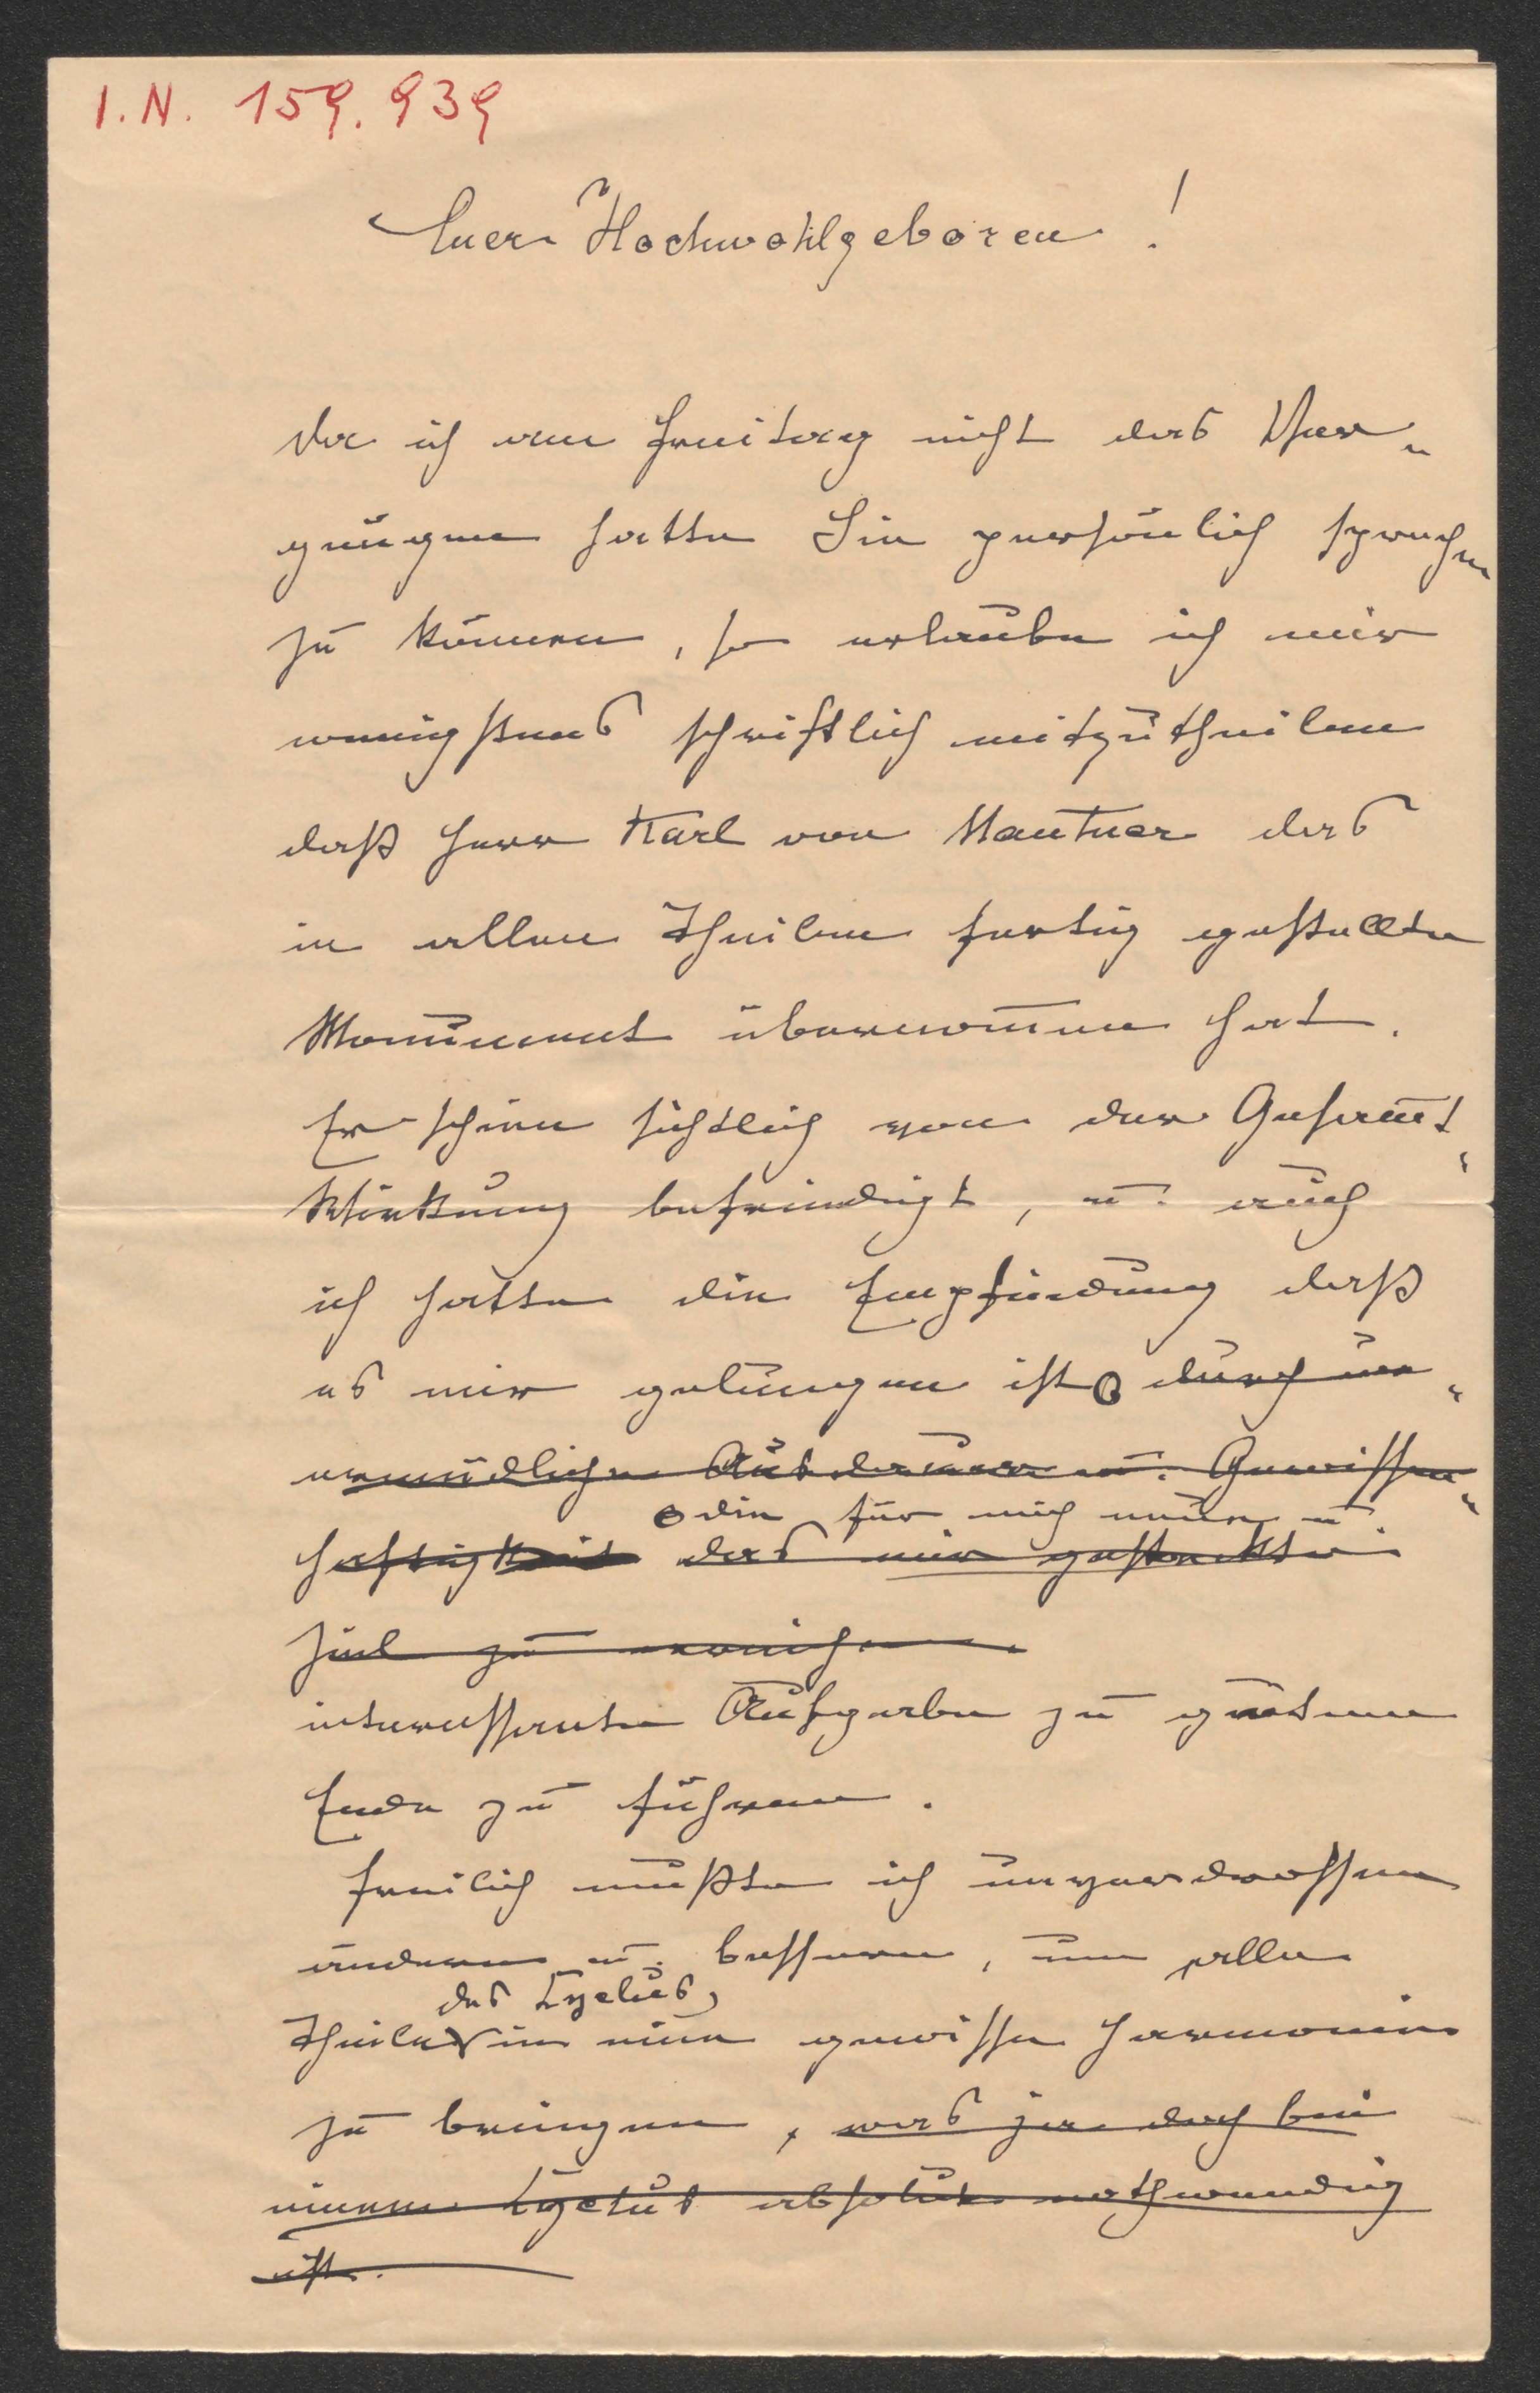 I.N. 159.939
Euer Hochwohlgeboren!
da ich am Freitag nicht das Ver„
gnügen hatte Sie persönlich sprechen
zu können, so erlaube ich mir
wenigstens schriftlich mitzutheilen
daß Herr Karl von Mautner das
in allen Theilen fertig gestellte
Monument übernommen hat.
Er schien sichtlich von der Gesammt„
Wirkung befriedigt, u. auch
ich hatte die Empfindung daß
es mir gelungen ist durch un„
ermüdliche Ausdauer u. Gewissen„
die für mich neue u.
haftigkeit das mir gesteckte
Ziel zu erreichen
interessante Aufgabe zu gutem
Ende zu führen.
Freilich mußte ich unverdrossen
ändern u. bessern, um alle
des Cyclus,
Theile in eine gewisse Harmonie
zu bringen, was ja doch bei
einem Cyclus absolut nothwendig
ist.